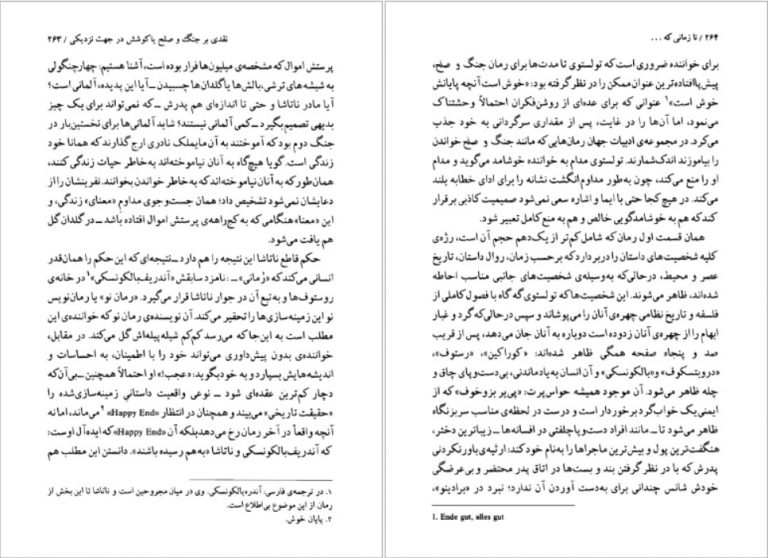 نقدی بر جنگ و صلح یا کوشش در جهت نزدیکی / ۲۶۳
پرستش اموال که مشخصه‌ی میلیون‌ها فرار بوده است، آشنا هستیم: چهارچنگولی
به شیشه‌های ترشی، بالش‌ها یا گلدان‌ها چسبیدن ـ آیا این پدیده، آلمانی است؟
آیا مادر ناتاشا و حتی تا اندازه‌ای هم پدرش ـ که نمی‌تواند برای یک چیز
بدیهی تصمیم بگیرد ـ کمی آلمانی نیستند؟ شاید آلمانی‌ها برای نخستین‌بار در
جنگ دوم بود که آموختند به آن مایملک نادری ارج گذارند که همانا خود
زندگی است. گویا هیچ‌گاه به آنان نیاموخته‌اند به خاطر حیات زندگی کنند،
همان‌طور که به آنان نیاموخته‌اند که به خاطر خواندن بخوانند. نفرینشان را از
دعایشان نمی‌شود تشخیص داد؛ همان جست‌وجوی مداوم «معنای» زندگی، و
این «معنا» هنگامی که به کج‌راهه‌ی پرستش اموال افتاده باشد ـ در گلدان گل
هم یافت می‌شود.
حکم قاطع ناتاشا این نتیجه را هم دارد ـ نتیجه‌ای که این حکم را همان‌قدر
انسانی می‌کند که «رُمانی» ـ : نامزد سابقش «آندریف بالکونسکی»۱ در خانه‌ی
روستوف‌ها و به‌تبع آن در جوار ناتاشا قرار می‌گیرد. «رمان نو» یا رمان‌نویس
نو این زمینه‌سازی‌ها را تحقیر می‌کند. آن نویسنده‌ی رمان نو که خواننده‌ی این
مطلب است به این‌جا که می‌رسد کم‌کم شیله‌پیله‌اش گل می‌کند. در مقابل،
خواننده‌ی بدون پیش‌داوری می‌تواند خود را با اطمینان، به احساسات و
اندیشه‌هایش بسپارد و به خود بگوید: «عجب!» او احتمالاً همچنین ـ بی‌آن‌که
دچار کم‌ترین عقده‌ای شود ـ نوعی واقعیت داستانی زمینه‌سازی‌شده را
«حقیقت تاریخی» می‌بیند و همچنان در انتظار «Happy End»۲ می‌ماند، اما نه
آنچه واقعاً در آخر رمان رخ می‌دهد بلکه آن «Happy End» که ایده‌آل اوست:
که آندریف بالکونسکی و ناتاشا «به‌هم رسیده باشند». دانستن این مطلب هم
۱. در ترجمه‌ی فارسی: آندره بالکونسکی. وی در میان مجروحین است و ناتاشا تا این بخش از
رمان از این موضوع بی‌اطلاع است.
۲. پایان خوش.
۲۶۴ / تا زمانی که ...
برای خواننده ضروری است که تولستوی تا مدت‌ها برای رمان جنگ و صلح،
پیش‌پاافتاده‌ترین عنوان ممکن را در نظر گرفته بود: «خوش است آنچه پایانش
خوش است»۱ عنوانی که برای عده‌ای از روشن‌فکران احتمالاً وحشتناک
می‌نمود، اما آن‌ها را در غایت، پس از مقداری سرگردانی به خود جذب
می‌کرد. در مجموعه‌ی ادبیات جهان رمان‌هایی که مانند جنگ و صلح خواندن
را بیاموزند اندک‌شمارند. تولستوی مدام به خواننده خوشامد می‌گوید و مدام
او را منع می‌کند، چون به‌طور مداوم انگشت نشانه را برای ادای خطابه بلند
می‌کند. در هیچ کجا حتی با ایما و اشاره سعی نمی‌شود صمیمیت کاذبی برقرار
کند که هم به خوشامدگویی خالص و هم به منع کامل تعبیر شود.
همان قسمت اول رمان که شامل کم‌تر از یک‌دهم حجم آن است، رژه‌ی
کلیه شخصیت‌های داستان را دربر دارد که بر حسب زمان، روال داستان، تاریخ
عصر و محیط، درحالی‌که به‌وسیله‌ی شخصیت‌های جانبی مناسب احاطه
شده‌اند، ظاهر می‌شوند. این شخصیت‌ها که تولستوی گه گاه با فصول کاملی از
فلسفه و تاریخ نظامی چهره‌ی آنان را می‌پوشاند و سپس درحالی‌که گرد و غبار
ابهام را از چهره‌ی آنان زدوده است دوباره به آنان جان می‌دهد، پس از قریب
صد و پنجاه صفحه همگی ظاهر شده‌اند: «کوراگین»، «رستوف»،
«دروبتسکوف» و «بالکونسکی» و آن انسان به‌یادماندنی، بی‌دست‌وپای چاق و
چله ظاهر می‌شود. آن موجود همیشه حواس‌پرت: «پی‌یر بزوخوف» که از
ایمنی یک خواب‌گرد برخوردار است و درست در لحظه‌ی مناسب سر بزنگاه
ظاهر می‌شود تا ـ مانند افراد دست‌وپاچلفتی در افسانه‌ها ـ زیباترین دختر،
هنگفت‌ترین پول و بیش‌ترین ماجراها را به‌نام خود کند: ارثیه‌ی باورنکردنی
پدرش که با در نظر گرفتن بند و بست‌ها در اتاق پدر محتضر و بی‌عرضگی
خودش شانس چندانی برای به‌دست آوردن آن ندارد؛ نبرد در «برادینو»،
1. Ende gut, alles gut